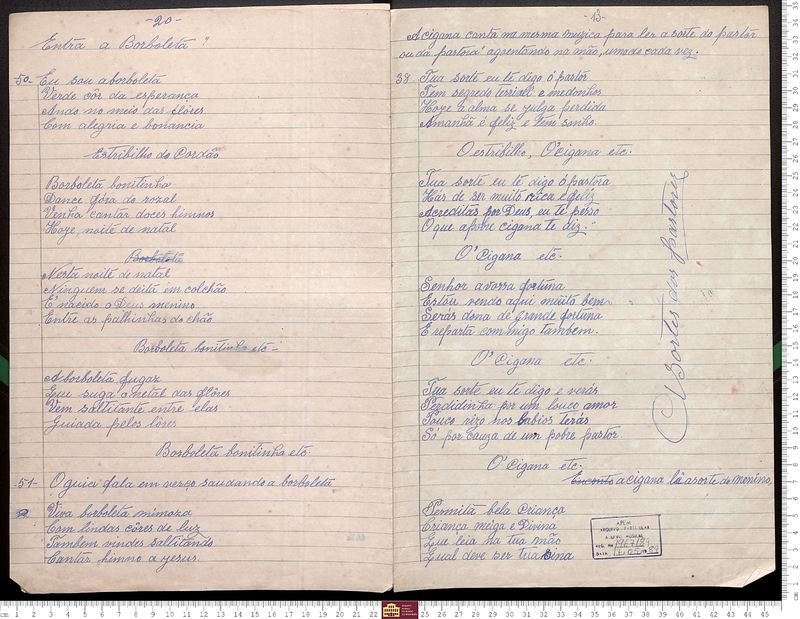 -20-
Entra a Borboleta
50- Eu sou a borboleta
Verde côr da esperança
Ando no meio das flôres
Com alegria e bonancia
Estribilho do Cordão
Borboleta bonitinha
Dance fóra do rozal
Venha cantar doces himnos
Hoje, noite de natal
Borboleta
Nesta noite de natal
Ninguem se deita em colchão
É nacido o Deus menino
Entre as palhinhas do chão
Borboleta bonitinha etc-
A borboleta fugaz
Que suga o metal das flôres
Vem saltitante entre elas
Guiada pelos
Borboleta bonitinha etc.
51- O guia fala em verço saudando a borboleta
Viva borboleta mimoza
Com lindas côres de luz
Tambem vindes saltitando
Cantar himno a jesus.
-13-
A cigana canta na mesma muzica para ler a sorte do pastor
ou da pastora apontando na mão, um de cada vez.
39. Tua sorte eu te digo ó pastor
Tem segredo terrivel e medonhos
Hoje a alma se julga perdida
Amanhã é feliz e tem sonho.
O estribilho, O'cigana etc.
Tua sorte eu te digo ó pastora
Hás de ser muito rica e feliz
Acreditas por Deus, eu te pesso
O que a pobre cigana te diz.
O' Cigana etc.
Senhor a vossa fortuna
Estou vendo aqui muito bem
Serás dona de grande fortuna
E reparta comnigo tambem.
O' Cigana etc.
Tua sorte eu te digo e verás
Perdidinha por um louco amor
Pouco rizo nos labios terás
Só por cauza de um pobre pastor.
O' Cigana etc.
Encanto a cigana lê a sorte do menino
Permita bela Criança
Criança meiga e Divina
Que leia na tua mão
Qual deve ser tua sina
Sortes das pastoras
APEM
ARQUIVO PARTICULAR
REG. No 1967/89
DATA